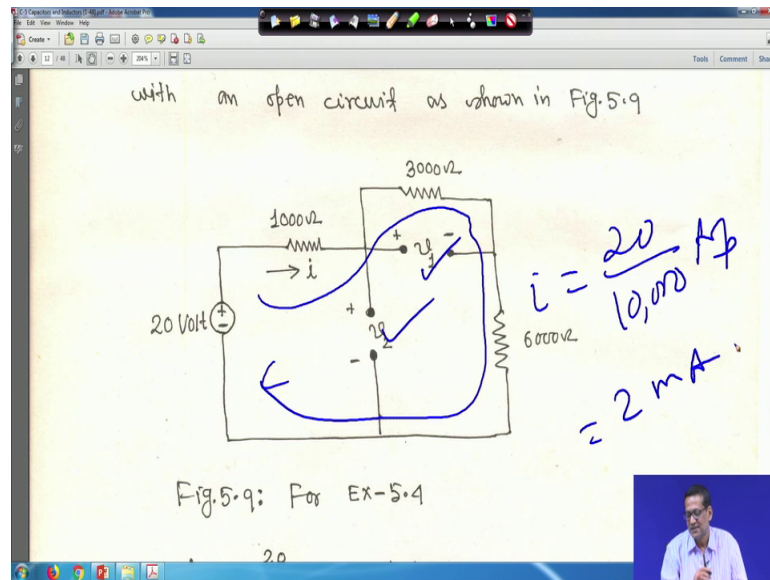 C-5 Capacitors and Inductors (1-48).pdf - Adobe Acrobat Pro
File Edit View Window Help
Create
12 / 48
204%
Tools Comment Share
with an open circuit as shown in Fig.5.9
3000Ω
1000Ω
+ v1 -
→ i
i = 20 / 10,000 Amp
+
20 Volt
+
-
v2
6000Ω
-
= 2 mA.
Fig.5.9: For Ex-5.4
20